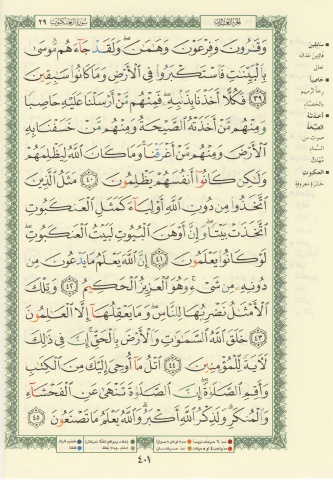 الجزء العشرون
سورة العنكبوت ٢٩
وَقَٰرُونَ وَفِرْعَوْنَ وَهَٰمَٰنَ ۖ وَلَقَدْ جَآءَهُم مُّوسَىٰ
بِٱلْبَيِّنَٰتِ فَٱسْتَكْبَرُوا۟ فِى ٱلْأَرْضِ وَمَا كَانُوا۟ سَٰبِقِينَ
٣٩ فَكُلًّا أَخَذْنَا بِذَنۢبِهِۦ ۖ فَمِنْهُم مَّنْ أَرْسَلْنَا عَلَيْهِ حَاصِبًا
وَمِنْهُم مَّنْ أَخَذَتْهُ ٱلصَّيْحَةُ وَمِنْهُم مَّنْ خَسَفْنَا بِهِ
ٱلْأَرْضَ وَمِنْهُم مَّنْ أَغْرَقْنَا ۚ وَمَا كَانَ ٱللَّهُ لِيَظْلِمَهُمْ
وَلَٰكِن كَانُوٓا۟ أَنفُسَهُمْ يَظْلِمُونَ ٤٠ مَثَلُ ٱلَّذِينَ
ٱتَّخَذُوا۟ مِن دُونِ ٱللَّهِ أَوْلِيَآءَ كَمَثَلِ ٱلْعَنكَبُوتِ
ٱتَّخَذَتْ بَيْتًا ۖ وَإِنَّ أَوْهَنَ ٱلْبُيُوتِ لَبَيْتُ ٱلْعَنكَبُوتِ ۖ
لَوْ كَانُوا۟ يَعْلَمُونَ ٤١ إِنَّ ٱللَّهَ يَعْلَمُ مَا يَدْعُونَ مِن
دُونِهِۦ مِن شَىْءٍ ۚ وَهُوَ ٱلْعَزِيزُ ٱلْحَكِيمُ ٤٢ وَتِلْكَ
ٱلْأَمْثَٰلُ نَضْرِبُهَا لِلنَّاسِ ۖ وَمَا يَعْقِلُهَآ إِلَّا ٱلْعَٰلِمُونَ
٤٣ خَلَقَ ٱللَّهُ ٱلسَّمَٰوَٰتِ وَٱلْأَرْضَ بِٱلْحَقِّ ۚ إِنَّ فِى ذَٰلِكَ
لَءَايَةً لِّلْمُؤْمِنِينَ ٤٤ ٱتْلُ مَآ أُوحِىَ إِلَيْكَ مِنَ ٱلْكِتَٰبِ
وَأَقِمِ ٱلصَّلَوٰةَ ۖ إِنَّ ٱلصَّلَوٰةَ تَنْهَىٰ عَنِ ٱلْفَحْشَآءِ
وَٱلْمُنكَرِ ۗ وَلَذِكْرُ ٱللَّهِ أَكْبَرُ ۗ وَٱللَّهُ يَعْلَمُ مَا تَصْنَعُونَ ٤٥
سابقين
حاصبا
أخذته
الصيحة
صوت من
السماء
العنكبوت
حشرة معروفة
٤٠١